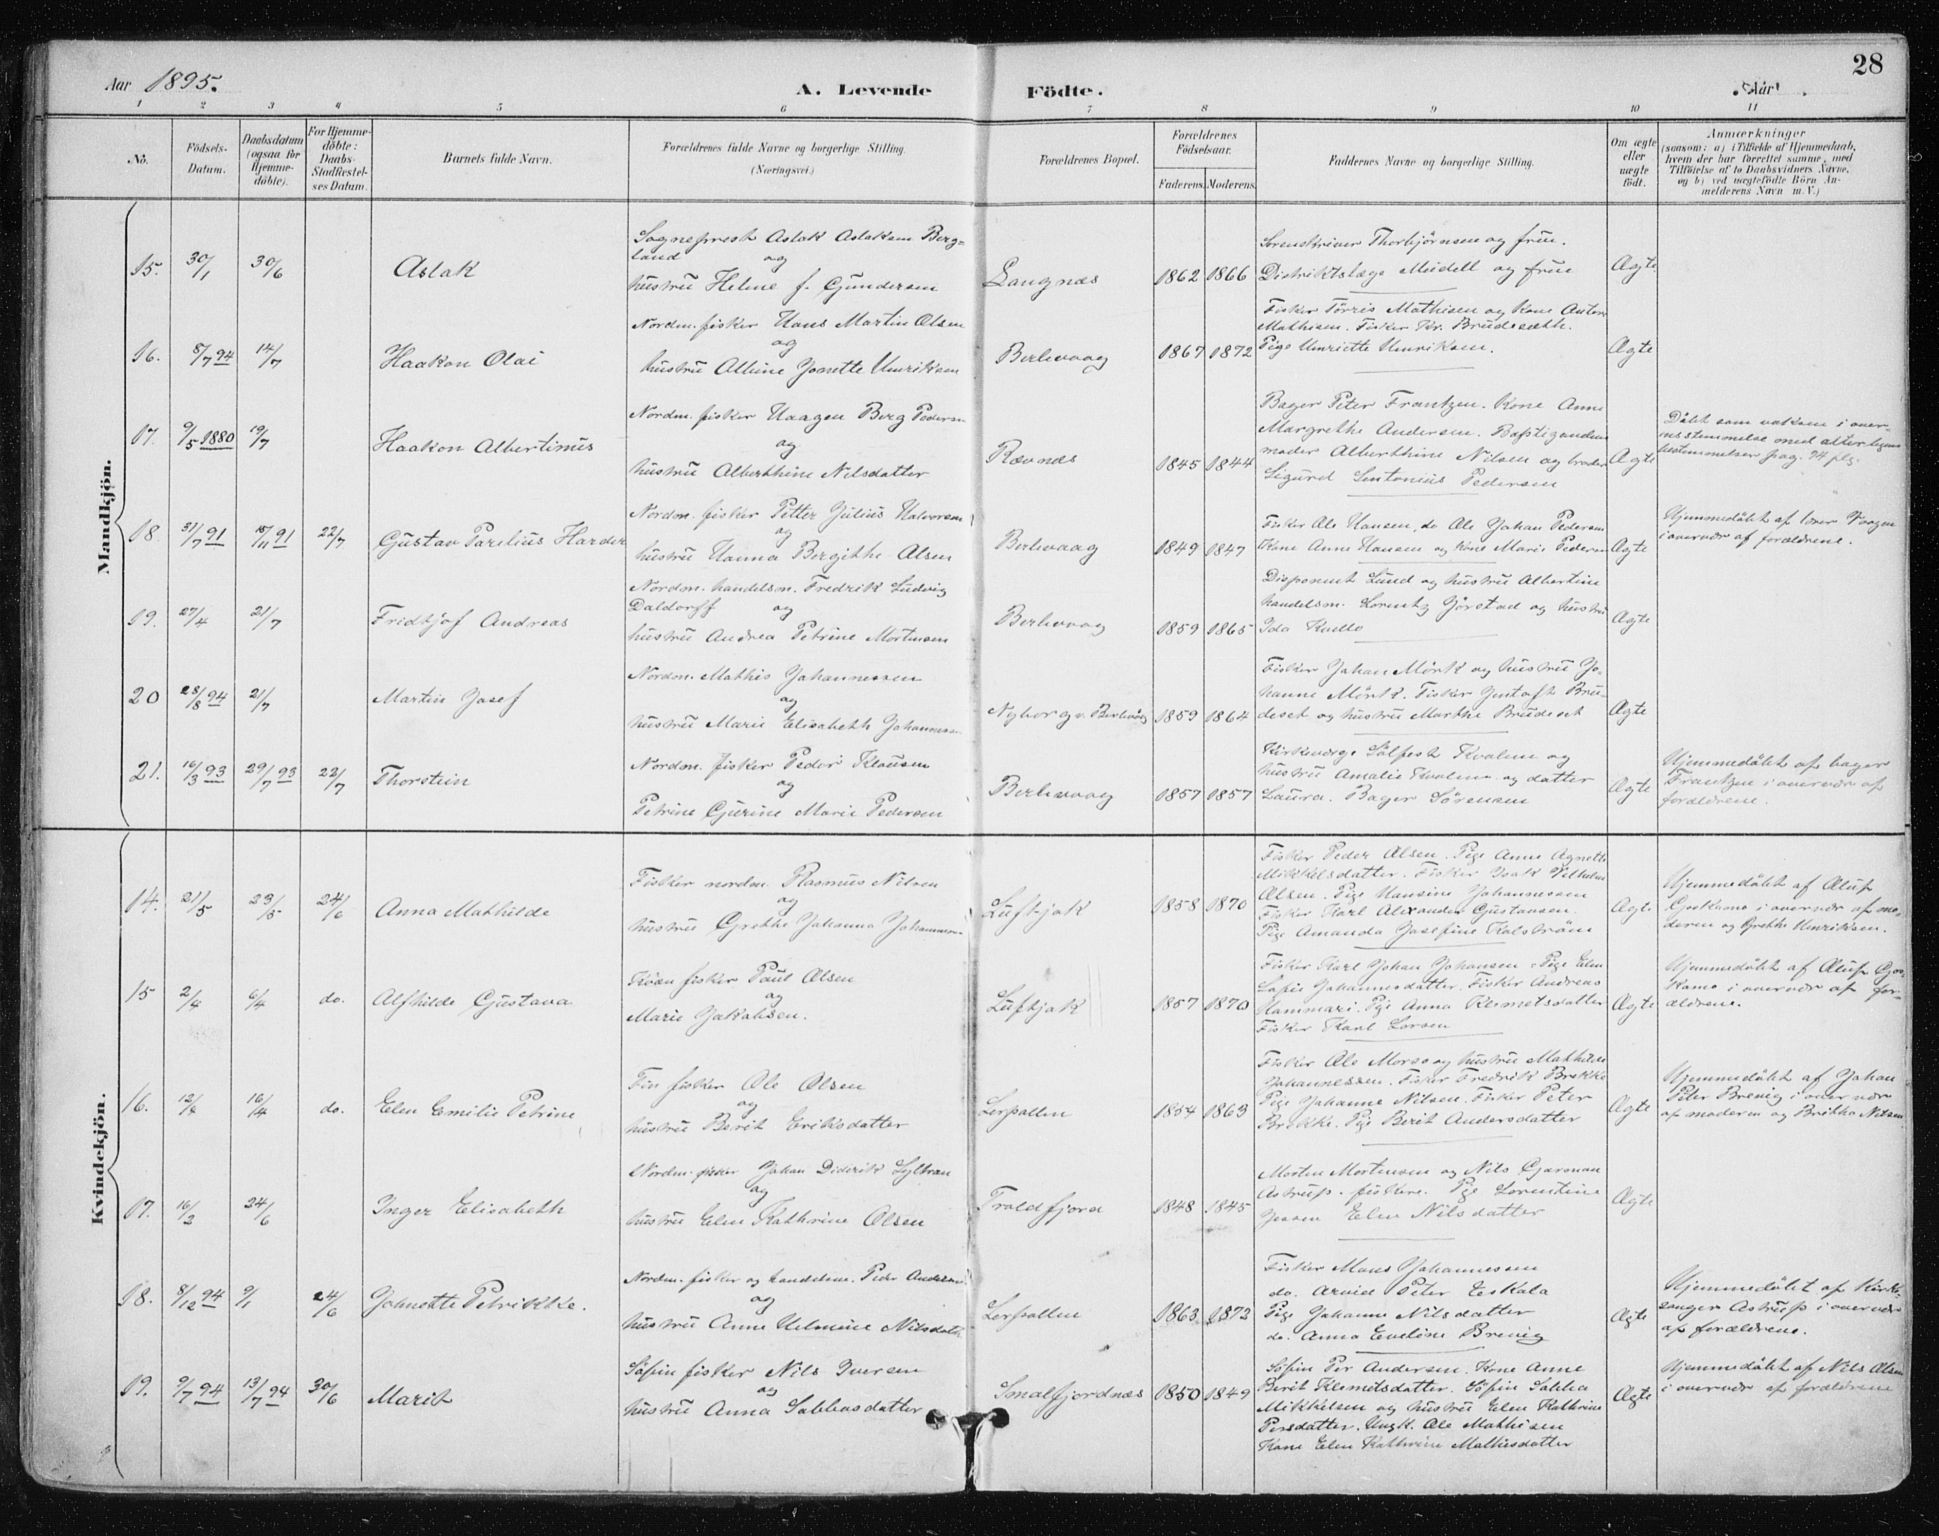 28
Aar 1895.
A. Levende Födte.
Aar
1 2 3 4 5 6 7 8 9 10 11
No.
Födsels-Datum.
Daabsdatum (ogsaa for Hjemme-döbte).
For Hjemme-döbte: Daabs-Stadfestel-ses Datum.
Barnets fulde Navn.
Forældrenes fulde Navne og borgerlige Stilling.
(Næringsvei.)
Forældrenes Bopæl.
Forældrenes Födselsaar.
Faderens. Moderens.
Faddernes Navne og borgerlige Stilling.
Om ægte eller uægte födt.
Anmærkninger
(saasom: a) i Tilfælde af Hjemmedaab,
hvem der har forrettet samme, med
Tilföielse af to Daabsvidners Navne,
og b) ved uægtefödte Börn An-
melderens Navn m. V.)
Mandkjön.
15. 30/1 30/6 Aslak
Sogneprest Aslak Aslaksen Berg-
land og
hustru Helene f. Gundersen
Langnæs 1862 1866
Sorenskriver Thorbjørnsen og frue.
Distriktslæge Meidell og frue
Ægte
16. 8/7 94 14/7 Haakon Olai
Nordm. fisker Hans Martin Olsen
og
hustru Albine Jonette Henriksen
Berlevaag 1867 1872
Fisker Tørris Mathisen og Kone
Mathisen. Fisker Kr. Brudesæth.
Pige Henriette Henriksen.
Ægte
17. 9/5 1880 19/7 Haakon Albertinus
Nordm. fisker Haagen Berg Peders
og
hustru Alberthine Nilsdatter
Rævnæs 1845 1844
Bager Peter Frantzen. Kone Anne
Margrethe Andersen.
moder Alberthine Nilsen og broder
Sigurd Pedersen
Ægte
Døbt som voksen i over-
ensstemmelse med
bestemmelser pag. 94 flg.
18. 31/7 91 15/11 91 22/7 Gustav Parelius Harder
Nordm. fisker Petter Julius Halvorsen
og
hustru Hanna Bergithe Olsen
Berlevaag 1849 1847
Fisker Ole Hansen, do Ole Johan Pedersen
Kone Anne Hansen og Kone Marie Pedersen
Ægte
Hjemmedøbt af Vaagen
i overvær af forældrene.
19. 27/4 21/7 Fridtjof Andreas
Nordm. handelsm. Fredrik Ludvig
Daldorff og
hustru Andrea Petrine Mortensen
Berlevaag 1859 1865
Disponent Lund og hustru Albertine
handelsm. Lorentz Jørstad og hustru
Ida
Ægte
20 28/8 94 21/7 Martin Josef
Nordm. Mathis Johannessen
og
hustru Marie Elisabeth Johannesen
Nyborg v. Berlevåg 1859 1864
Fisker Johan Mörk og hustru Jo-
hanne Mörk. Fisker Bru-
deset og hustru Marthe Brudeset
Ægte
21. 16/3 93 29/7 93 22/7 Thorstein
Nordm. fisker Peder Klausen
og
Petrine Gurine Marie Pedersen
Berlevaag 1857 1857
Kirkeværge Sölfest Kvalen og
hustru Amalie Kvalen og datter
Laura. Bager Sörensen
Ægte
Hjemmedøbt af bager
Frantzen i overvær af
forældrene.
Kvindekjön.
14. 21/5 23/5 24/6 Anna Mathilde
Fisker nordm. Rasmus Nilsen
og
hustru Grethe Johanna Johannesen
Luftjok 1858 1870
Fisker Peder Olsen. Pige Anne Agnethe
Mikkelsdatter. Fisker Isak Vilhelm
Olsen. Pige Hansine Johannessen
Fisker Karl Alexander Gustavsen.
Pige Amanda Josefine Kalström
Ægte
Hjemmedøbt af Oluf
i overvær af mo-
deren og Grethe Henriksen.
15 2/4 6/4 do. Alfhilde Gustava
Kvæn fisker Paul Olsen
og
Marie Jakobsen.
Luftjok 1857 1870
Fisker Karl Johan Johansen. Pige Elen
Sofie Johannesdatter. Fisker Andreas
Hammari. Pige Anna Klemetsdatter
Fisker Karl Larsen
Ægte
Hjemmedøbt af Oluf
i overvær af for-
ældrene.
16. 12/4 16/4 do. Elen Emilie Petrine
Fin fisker Ole Olsen
og
hustru Berit Eriksdatter
Lerpollen 1854 1863
Fisker Ole Morso og hustru Mathilde
Johannessen. Fisker Fredrik Brekke
Pige Johanne Nilsen. Fisker Peter
Brekke. Pige Berit Andersdatter
Ægte
Hjemmedøbt af Johan
Peter Brenig i overvær
af moderen og Brithe Nilsen.
17. 16/2 24/6 Inger Elisabeth
Nordm. fisker Johan Diderik Sylvan
og
hustru Elen Kathrine Olsen
Troldfjord 1848 1845
Morten Mortensen og Nils Gjerman
Astrup. fiskere. Pige Lorentine
Jessen Elen Nilsdatter
Ægte
18. 8/12 94 9/1 24/6 Johnette Petrikke.
Nordm. fisker og handelsm. Peder Andersen
og
hustru Anne Helmine Nilsdatt.
Lerpollen 1863 1873
Fisker Hans Johannessen
do. Arvid Peter Eskola
Pige Johanne Nilsdatter
do. Anna Eveline Brenig
Ægte
Hjemmedøbt af Kirke-
sanger Astrup i overvær
af forældrene.
19. 9/7 94 13/7 94 30/6 Marit
Söfin fisker Nils Iversen
og
hustru Anna Sabbasdatter
Smalfjordnæs 1850 1849
Söfin Per Andersen. Kone Anne
Berit Klemitsdatter. Söfin Sabba
Mikkelsen og hustru Elen Kathrine
Persdatter. Ungk. Ole Mathisen
Kone Elen Kathrine Mathisdatter
Ægte
Hjemmedøbt af Nils Olsen
i overvær af forældrene